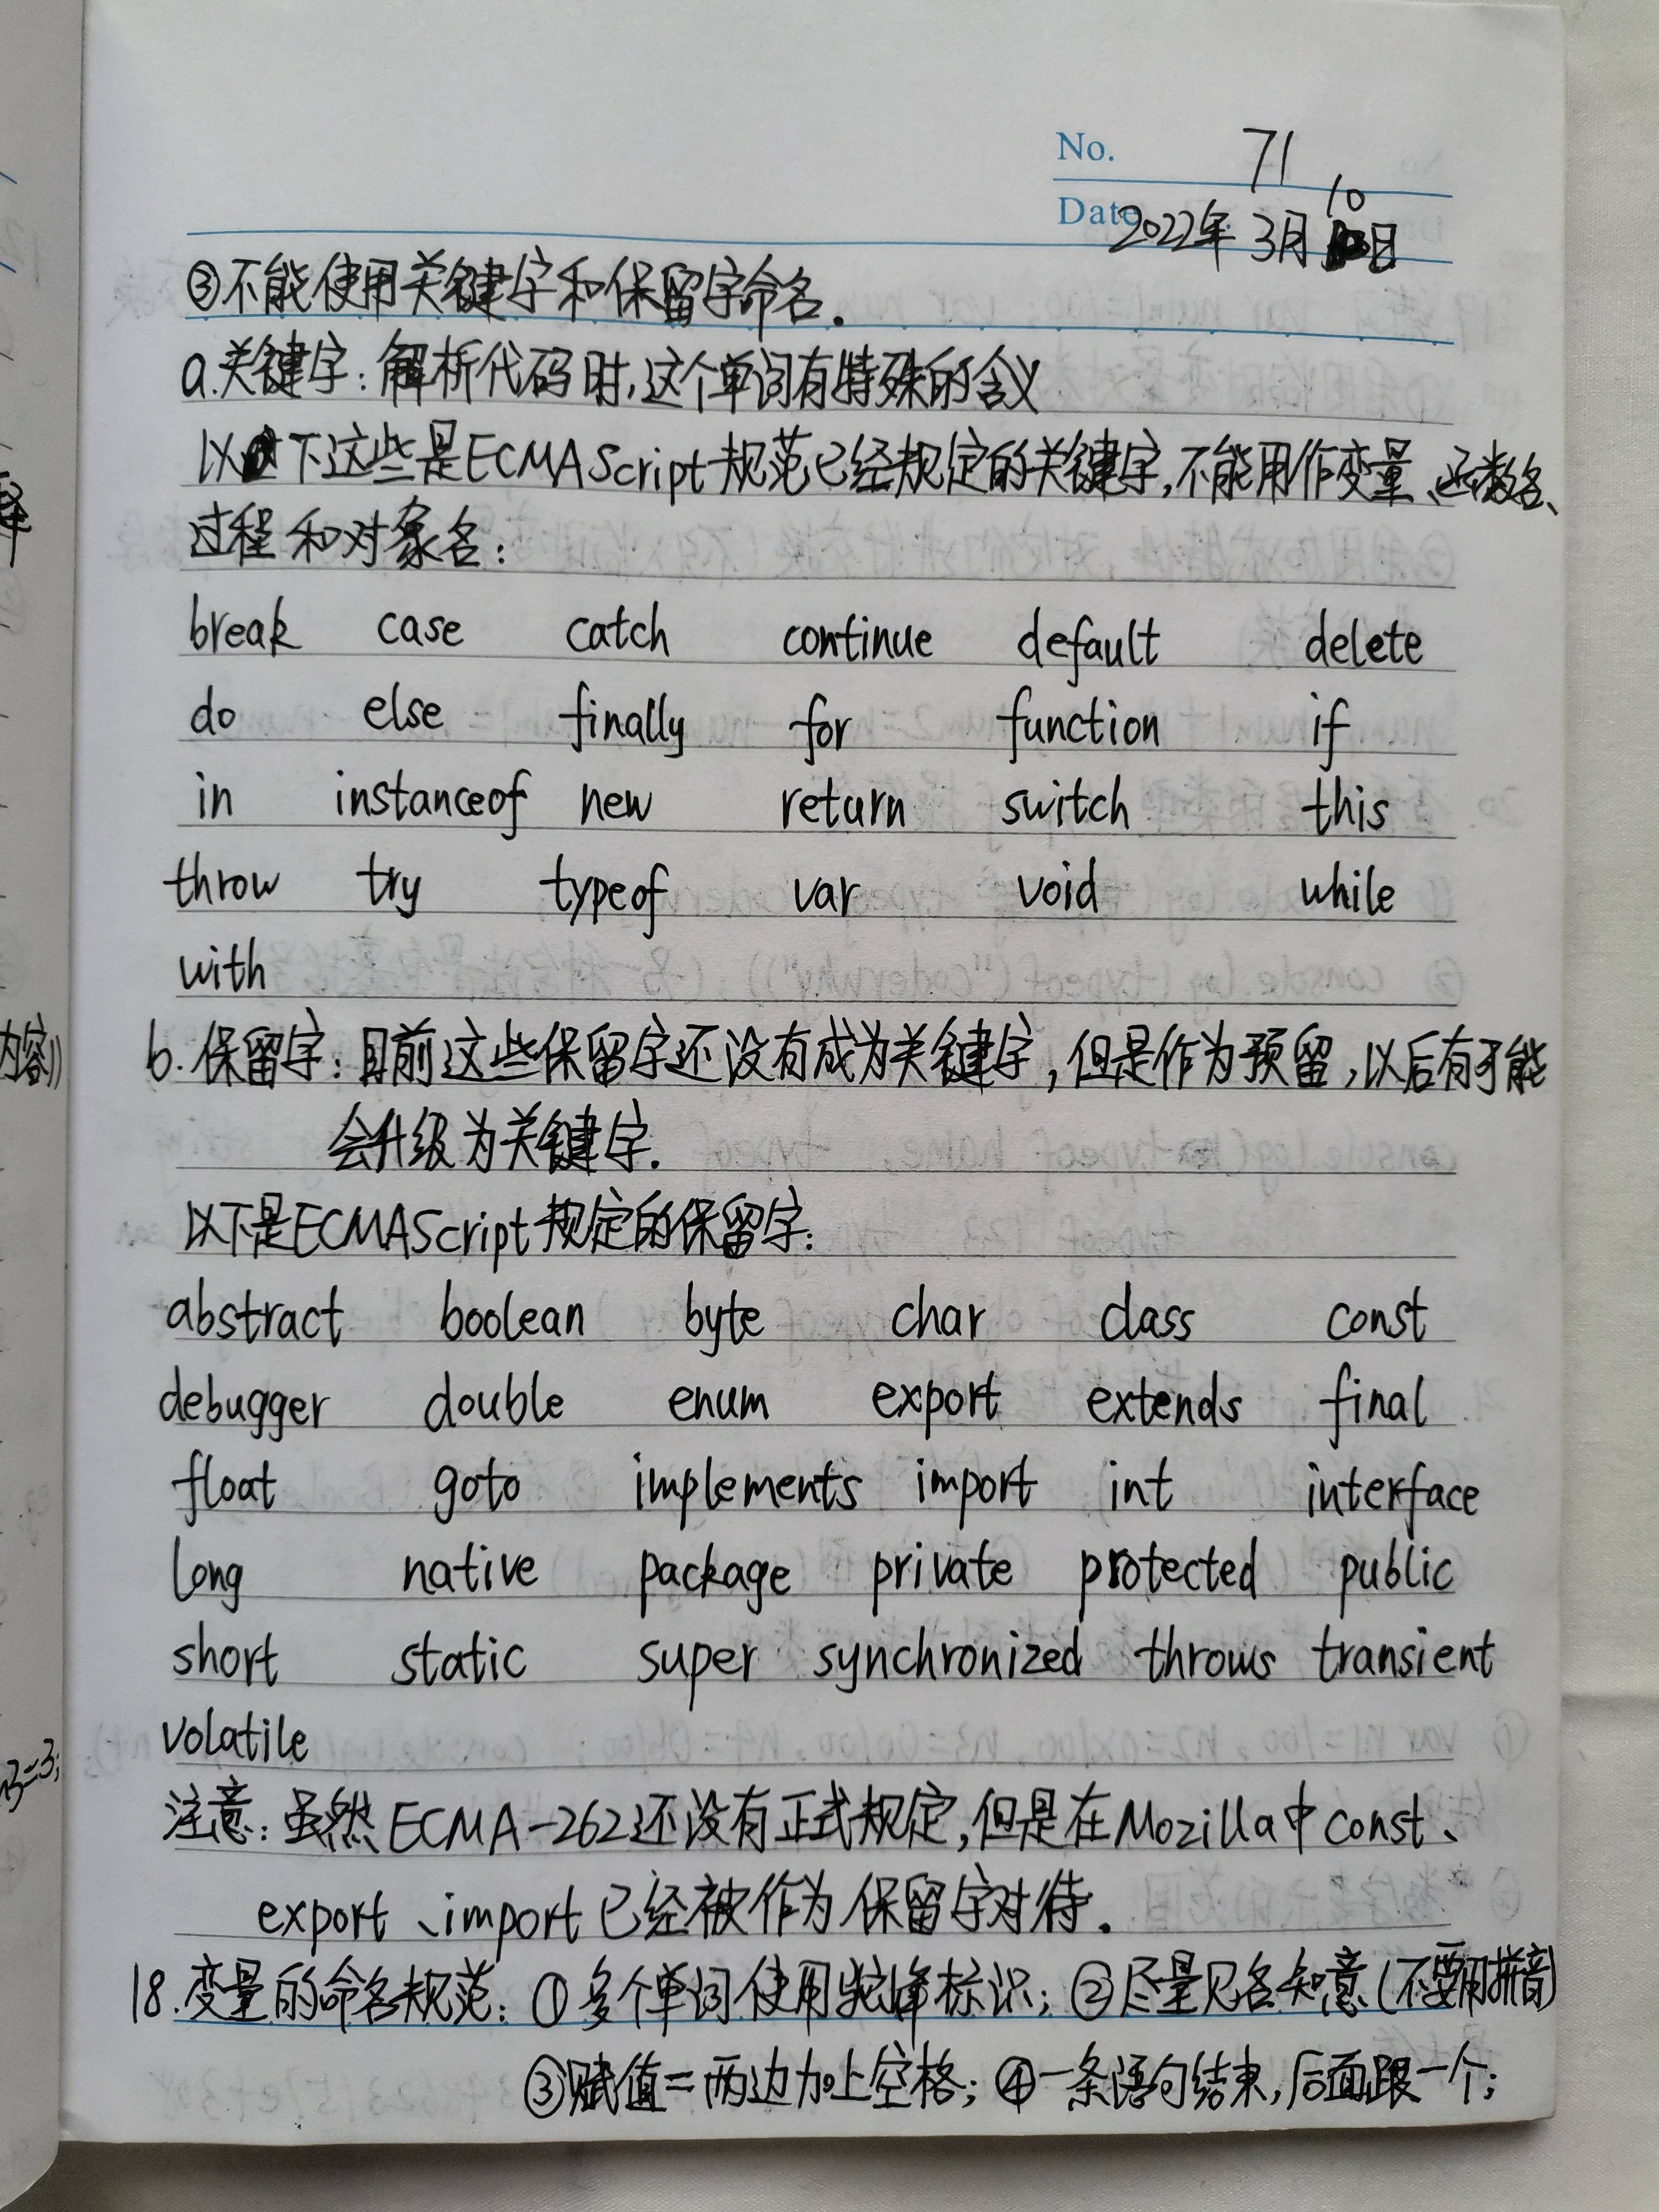 No. 71
Date 2022年3月10日
③不能使用关键字和保留字命名.
a.关键字:解析代码时,这个单词有特殊的含义
以下这些是ECMAScript规范已经规定的关键字,不能用作变量、函数名、
过程和对象名:
break case catch continue default delete
do else finally for function if
in instanceof new return switch this
throw try typeof var void while
with
b.保留字:目前这些保留字还没有成为关键字,但是作为预留,以后有可能
会升级为关键字.
以下是ECMAScript规定的保留字:
abstract boolean byte char class const
debugger double enum export extends final
float goto implements import int interface
long native package private protected public
short static super synchronized throws transient
volatile
注意:虽然ECMA-262还没有正式规定,但是在Mozilla中const、
export、import已经被作为保留字对待.
18.变量的命名规范:①多个单词使用驼峰标识;②尽量见名知意(不要用拼音)
③赋值=两边加上空格;④一条语句结束,后面跟一个;
内容))
=3;